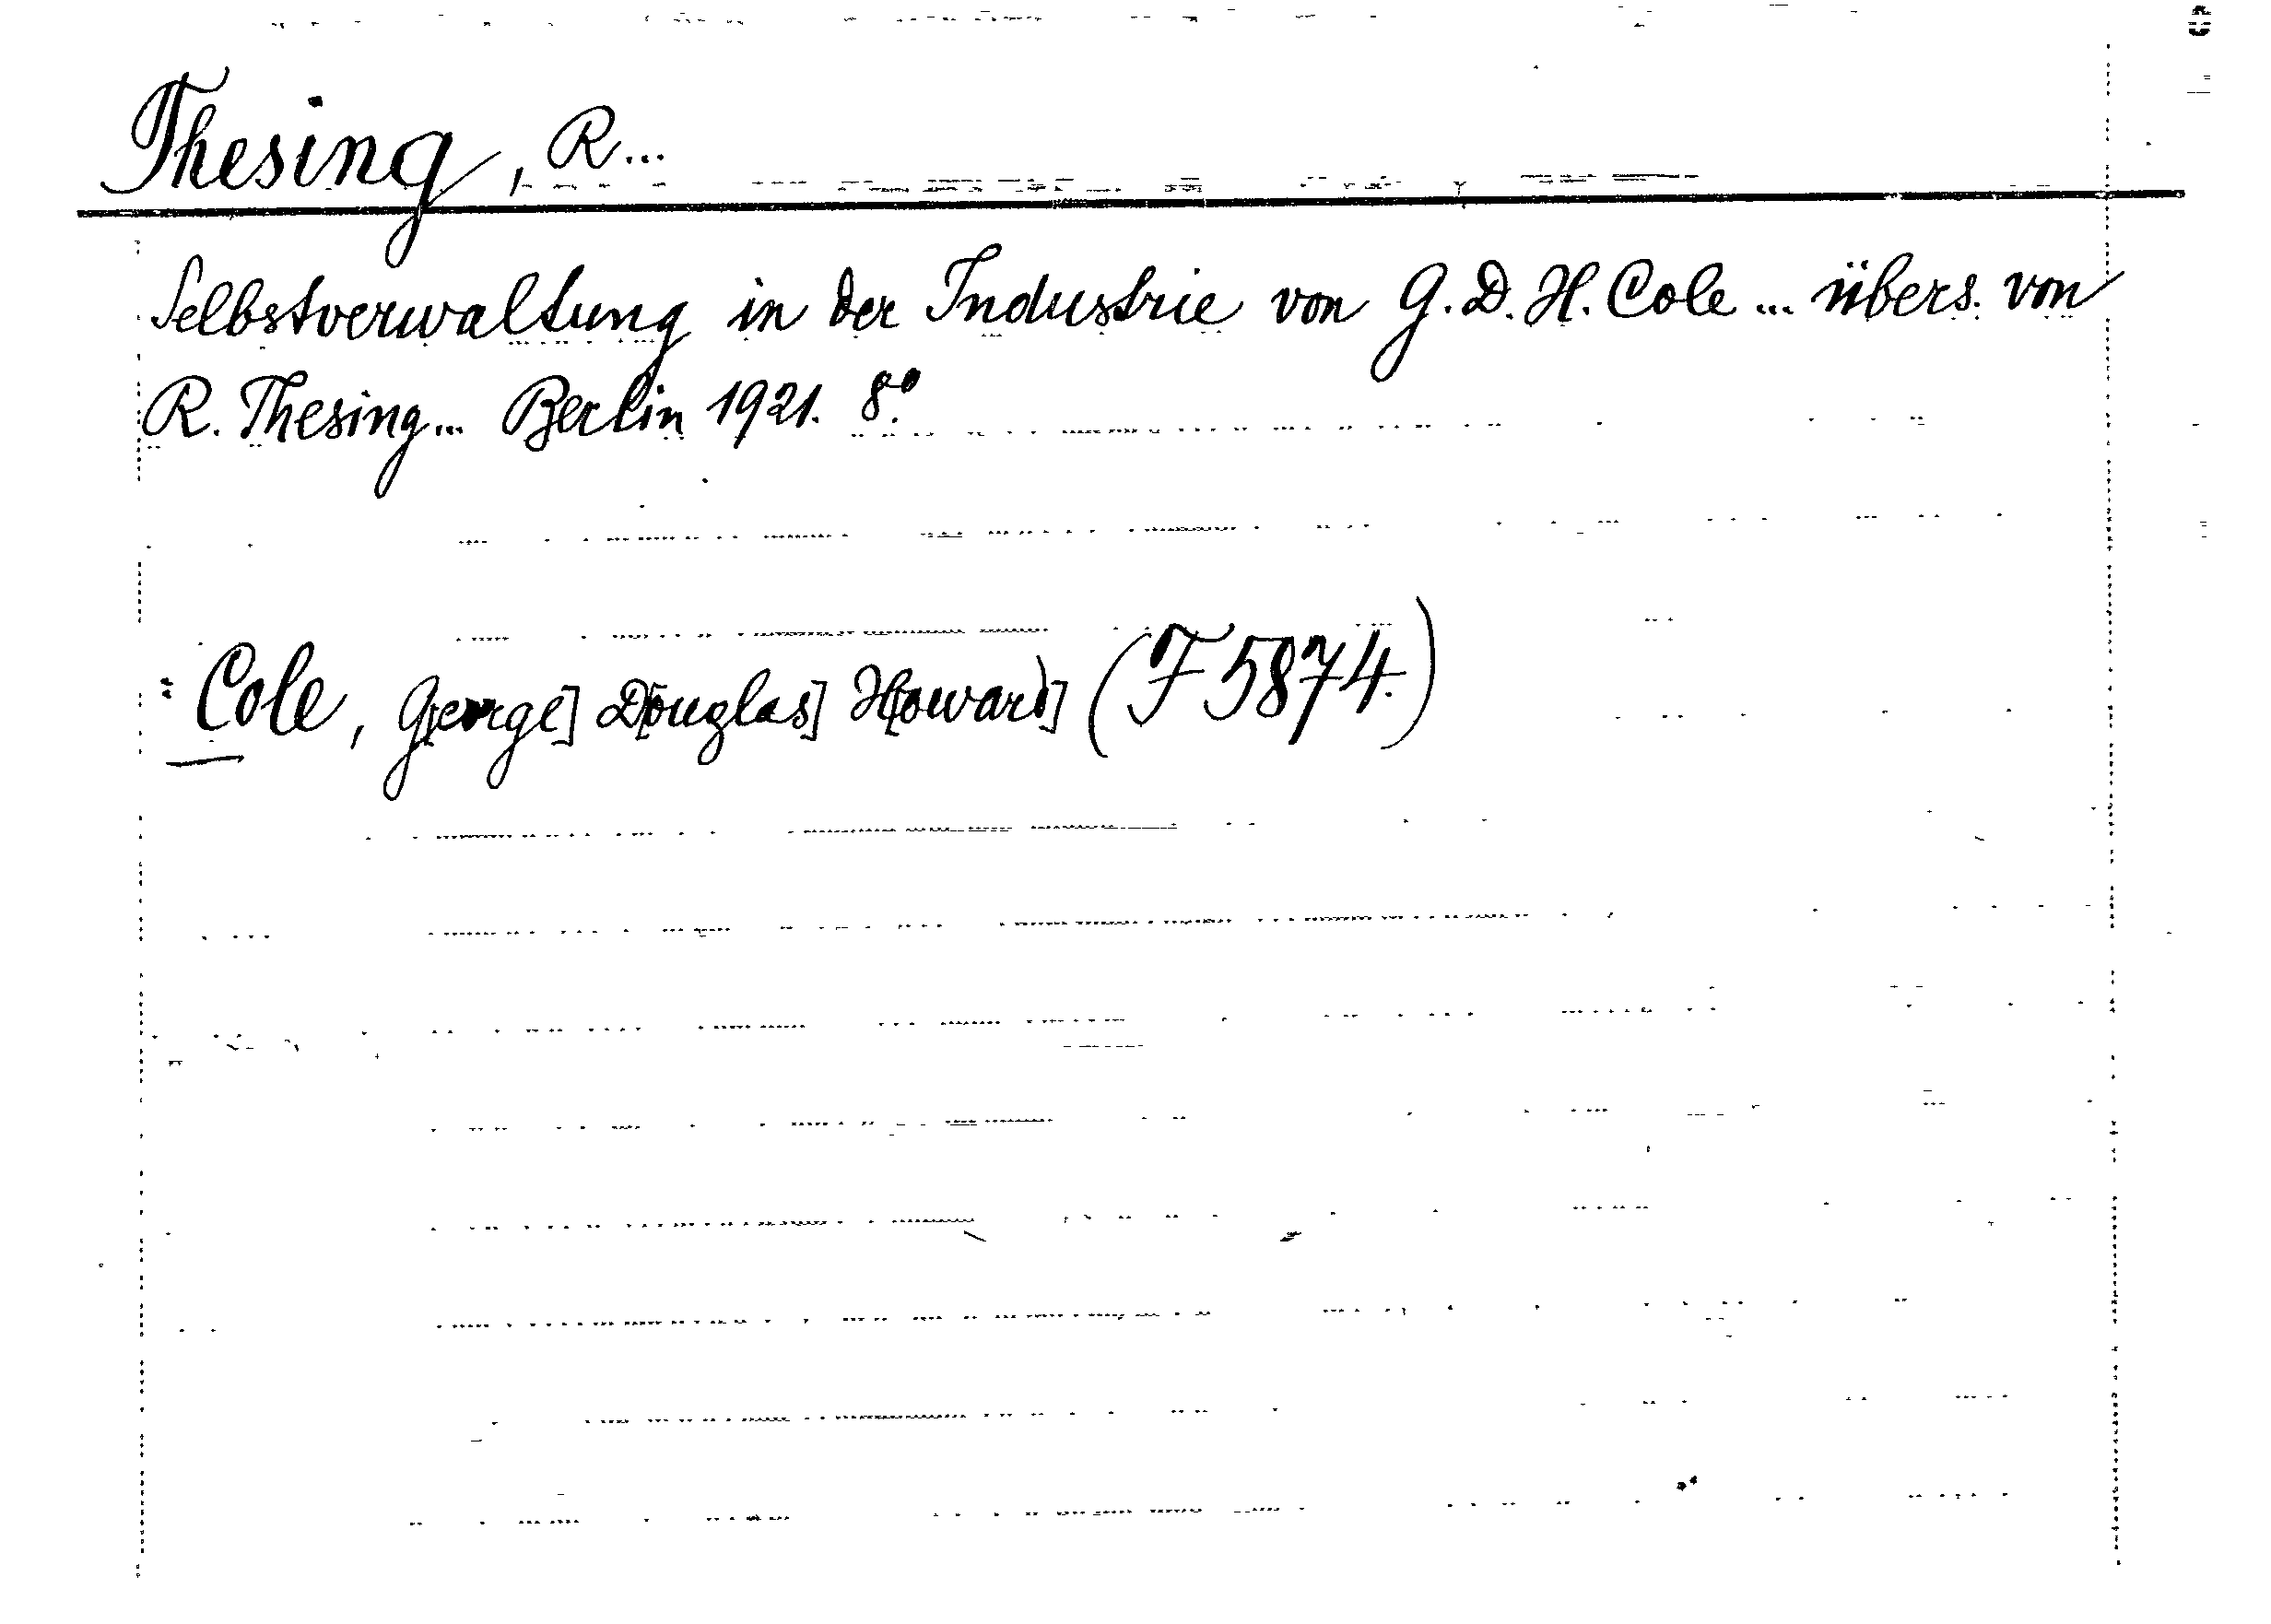 Thesing, R...
Selbstverwaltung in der Industrie von G. D. H. Cole ... übers. von
R. Thesing ... Berlin 1921. 8.°
= Cole, G[eorge] D[ouglas] H[oward] (F 5874.)